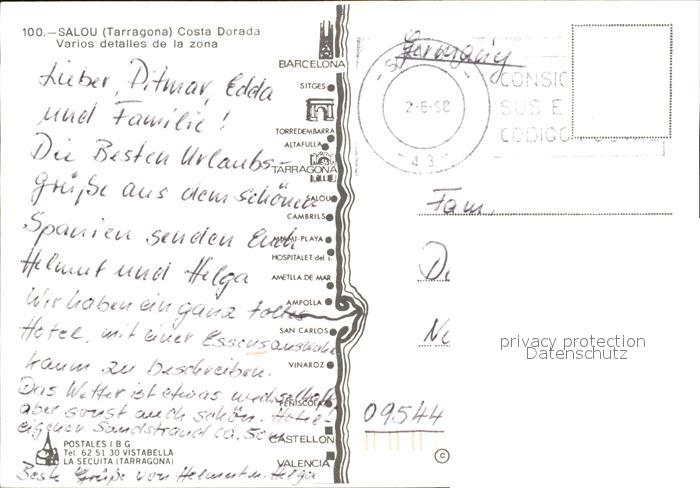 100.-SALOU (Tarragona) Costa Dorada
Varios detalles de la zona
Lieber, Ditmar, Edda
und Familie!
Die Besten Urlaubs-
grüße aus dem schönen
Spanien senden Euch
Helmut und Helga
Wir haben ein ganz tolles
Hotel, mit einer Essensauswahl
kaum zu beschreiben.
Das Wetter ist etwas wechselhaft
aber sonst auch schön. Hotel!
eigener Sandstrand ca.
Beste Grüße von Helmut u. Helga
POSTALES I B G
Tel. 62 51 30 VISTABELLA
LA SECUITA (TARRAGONA)
BARCELONA
SITGES
TORREDEMBARRA
ALTAFULLA
TARRAGONA
SALOU
CAMBRILS
MIAMI-PLAYA
HOSPITALET del I.
AMETLLA DE MAR
AMPOLLA
SAN CARLOS
VINAROZ
PEÑISCOLA
CASTELLON
VALENCIA
Germany
2-6-98
-43-
CONSIG
SUS E
CODIGO POSTAL
Fam.
D
N
09544
©
privacy protection
Datenschutz